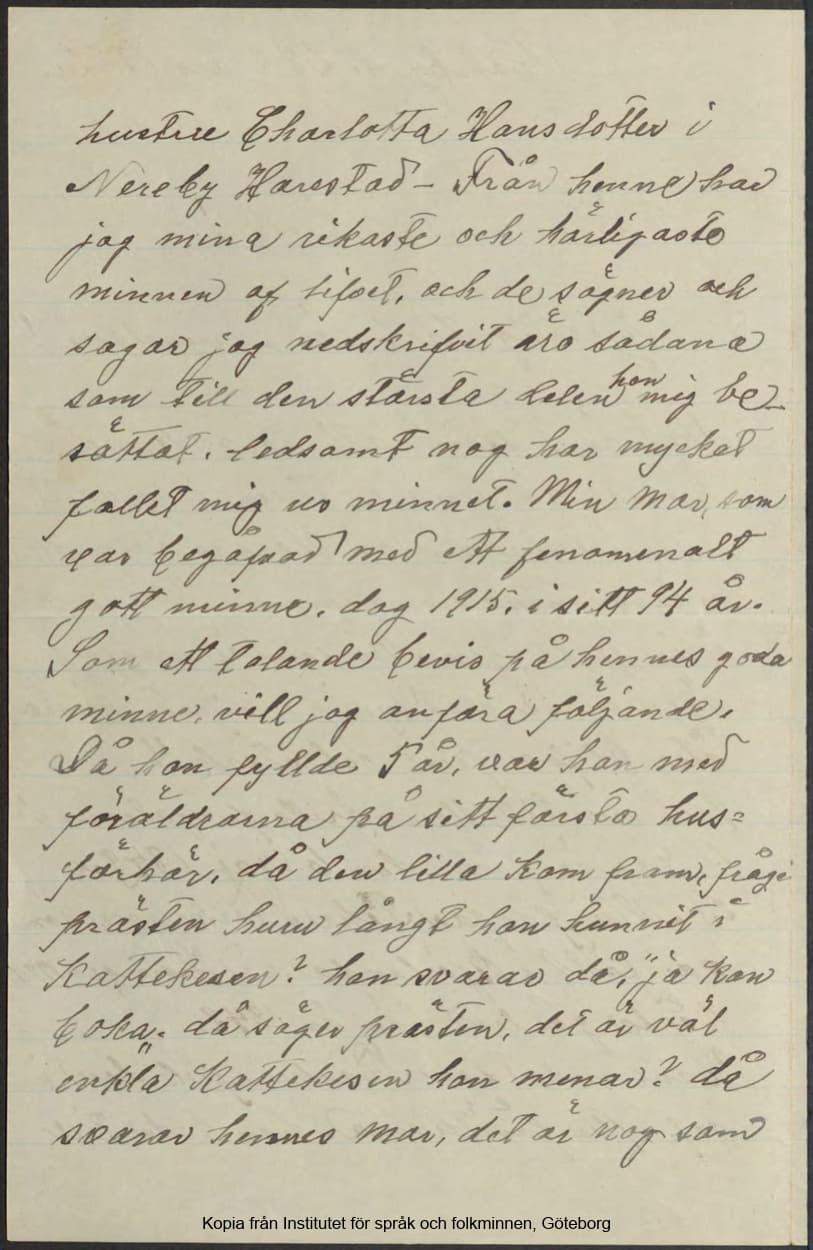 hustru Charlotta Hansdotter i
Nereby Harestad – Från henne har
jag mina rikaste och härligaste
minnen af lifvet, och de sägner och
sagar jag nedskrifvit äro sådana
som till den största delen hon mig be-
rättat. ledsamt nog har mycket
fallet mig ur minnet. Min mor, som
var begåfvad med ett fenomenalt
gott minne, dog 1915. i sitt 94 år.
Som ett talande bevis på hennes goda
minne, vill jag anföra följande.
Då hon fyllde 5 år, var hon med
föräldrarna på sitt första hus=
förhör, då den lilla kom fram, fråge
prästen huru långt hon hunnit i
Kattekesen? hon svarar då, "ja kan
boka". då säger prästen, det är väl
enkla Kattekesen hon menar? då
svarar hennes mor, det är nog som
Kopia från Institutet för språk och folkminnen, Göteborg